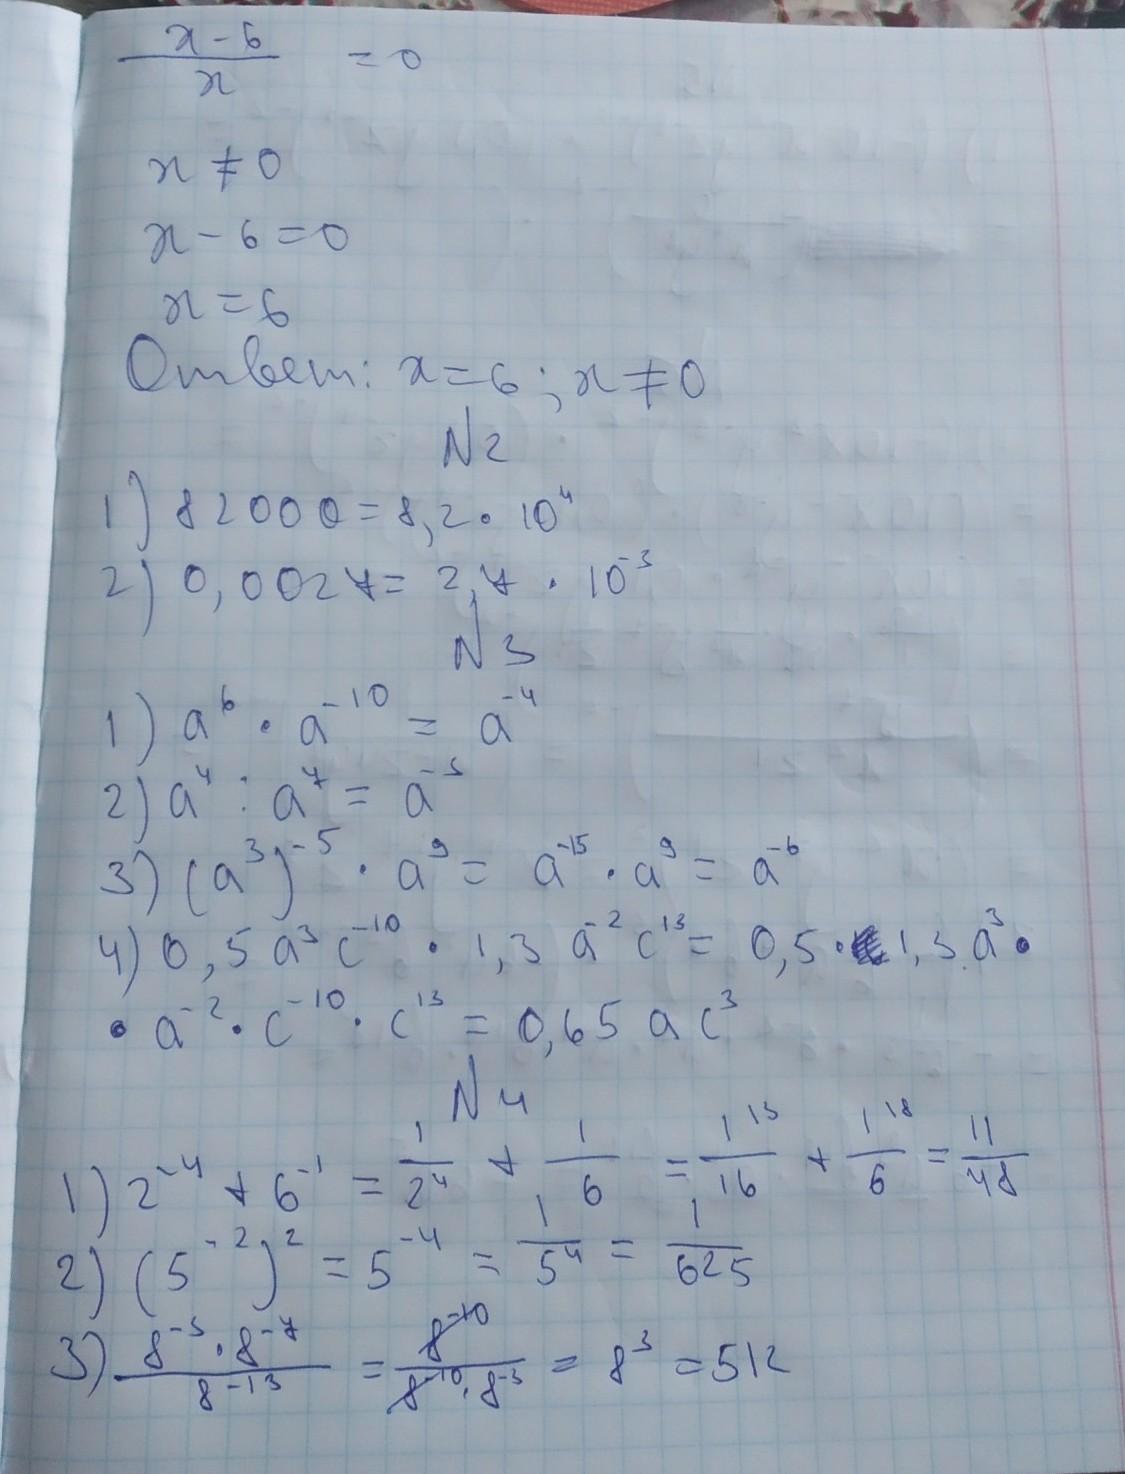 x-6/x = 0
x ≠ 0
x - 6 = 0
x = 6
Ответ: x = 6 ; x ≠ 0
N2
1) 82000 = 8,2 · 10⁴
2) 0,0027 = 2,7 · 10⁻³
N3
1) a⁶ · a⁻¹⁰ = a⁻⁴
2) a⁴ : a⁷ = a⁻³
3) (a³)⁻⁵ · a⁹ = a⁻¹⁵ · a⁹ = a⁻⁶
4) 0,5 a³ c⁻¹⁰ · 1,3 a⁻² c¹³ = 0,5 · 1,3 a³ ·
· a⁻² · c⁻¹⁰ · c¹³ = 0,65 a c³
N4
1) 2⁻⁴ + 6⁻¹ = 1/2⁴ + 1/6 = 1/16 + 1/6 = 11/48
2) (5⁻²)² = 5⁻⁴ = 1/5⁴ = 1/625
3) 8⁻³ · 8⁻⁷/8⁻¹³ = 8⁻¹⁰/8⁻¹⁰ · 8⁻³ = 8³ = 512